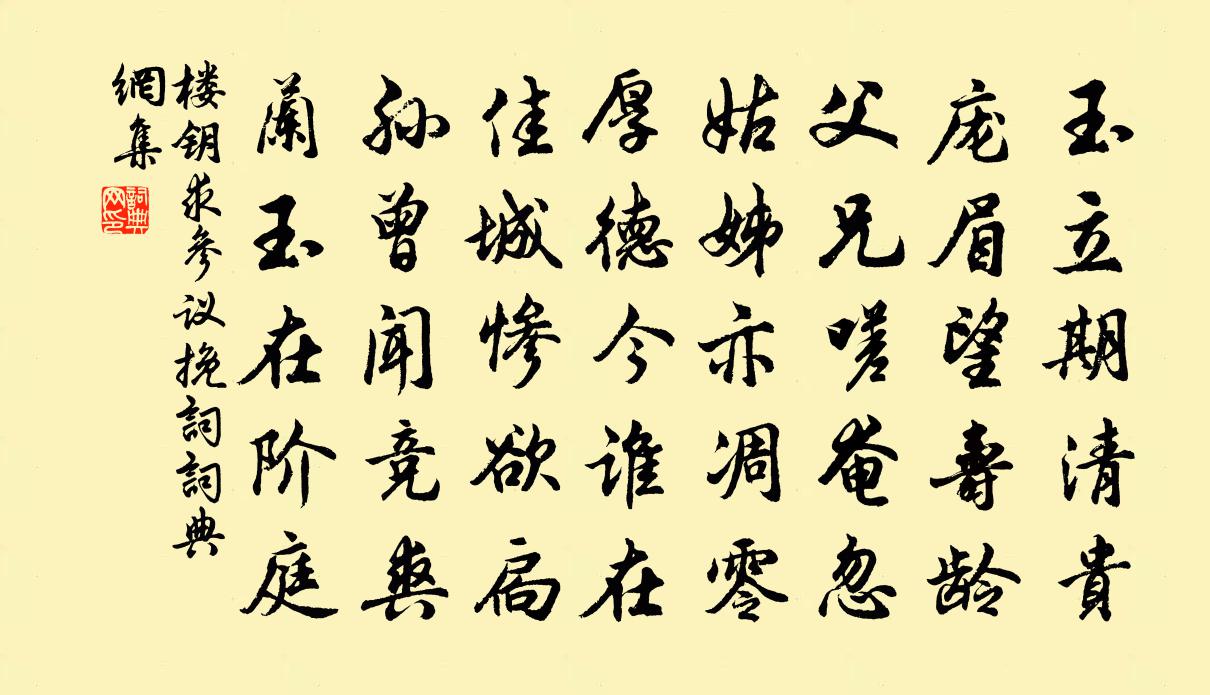 玉立期清貴
庞眉望壽龄
父兄嗟奄忽
姑姊亦凋零
厚德今谁在
佳城惨欲扃
孙曾闻竞爽
蘭玉在阶庭
楼钥求參议挽詞詞典
網集
詞典
网印